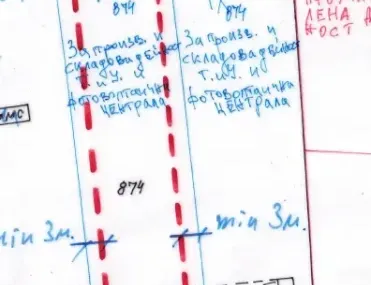 874
874
За произв. и
складова дейност
Т.И.У. и
фотоволтаична
централа
За произв. и
складова дейност
Т.И.У. и
фотоволтаична
централа
ЛЕНА
НОСТ
874
min 3м.
min 3м.